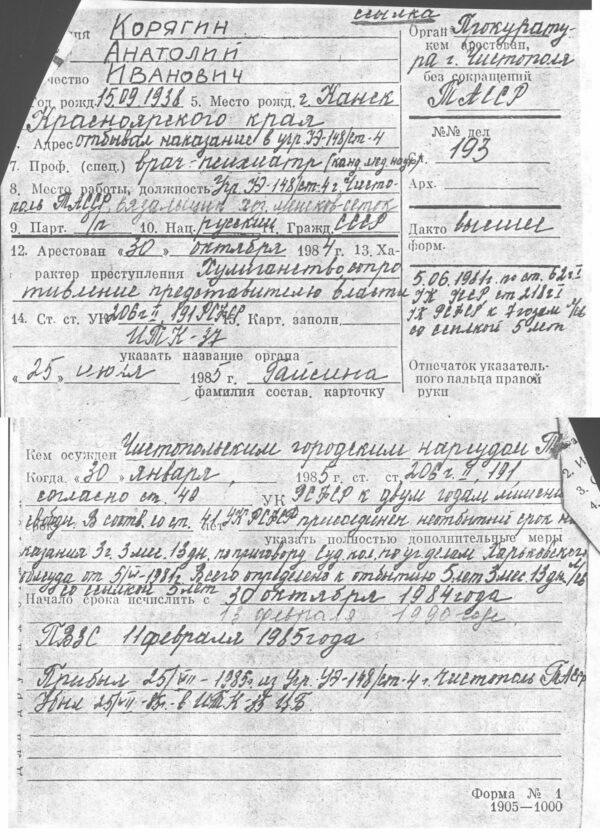 ссылка
Корягин
Анатолий
чество Иванович
од рожд. 15.09.1938 5. Место рожд. г. Канск
Красноярского края
Адрес отбывал наказание в учр. УЭ-148/ст-4
7. Проф. (спец.) врач-психиатр (канд. мед. наук)
8. Место работы, должность Учр. УЭ-148/ст-4 г. Чисто-
поль ТАССР вязальщик
9. Парт. б/п 10. Нац. русский Гражд. СССР
12. Арестован «30» октября 1984 г. 13. Ха-
рактер преступления Хулиганство сопро
тивление представителю власти
14. Ст. ст. УК 206 ч II, 191 РСФСР 15. Карт. заполн.
ИТК-37
указать название органа
«25» июля 1985 г. Гайсина
фамилия состав. карточку
Орган Прокурату-
кем арестован,
ра г. Чистополя
без сокращений
ТАССР
№№ дел
193
Арх.
Дакто высшее
форм.
5.06.1981г. по ст. 62 ч I
УК УССР ст 218 ч I
УК РСФСР к 7 годам л/св
со ссылкой 5 лет
Отпечаток указатель-
ного пальца правой
руки
Кем осужден Чистопольским городским нарсудом
Когда. «30» января, 1985 г. ст. ст. 206 ч. II, 191
согласно ст. 40 УК РСФСР к двум годам лишени
свобод. В соотв. со ст. 41 УК РСФСР присоединен неотбытый срок на
указать полностью дополнительные меры
казания 3 г. 3 мес. 13 дн. по приговору Суд. кол. по уг. делам Харьковского
облсуда от 5/VI-1981г. Всего определено к отбытию 5 лет 3 мес. 13 дн. л/св
со ссылкой 5 лет
Начало срока исчислить с 30 октября 1984 года
13 февраля 1990 года
ПВЗС 11 февраля 1985 года
Прибыл 25/VII-1985г из Учр. УЭ-148/ст-4 г. Чистополь ТАССР
Убыл 25/VII-85г. в ИТК-
Форма № 1
1905—1000
2. И
3.
4.